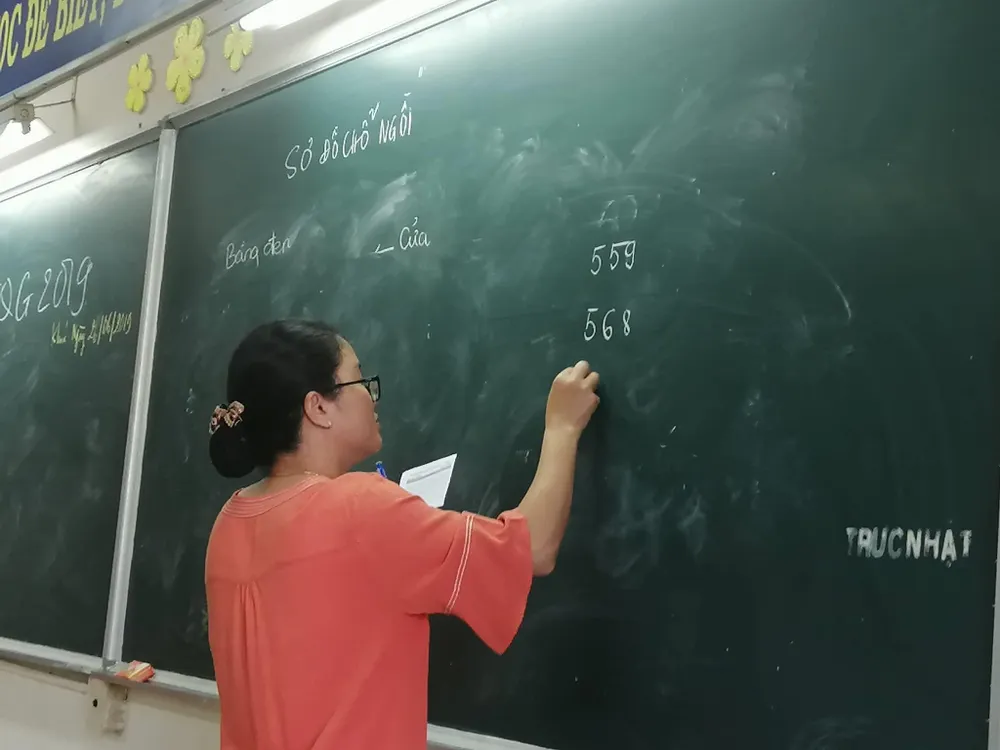 ỌC ĐỂ BIẾT,
SƠ ĐỒ CHỖ NGỒI
Bảng đen
← Cửa
559
568
QG 2019
Ngày /06/2019
TRỰC NHẬT